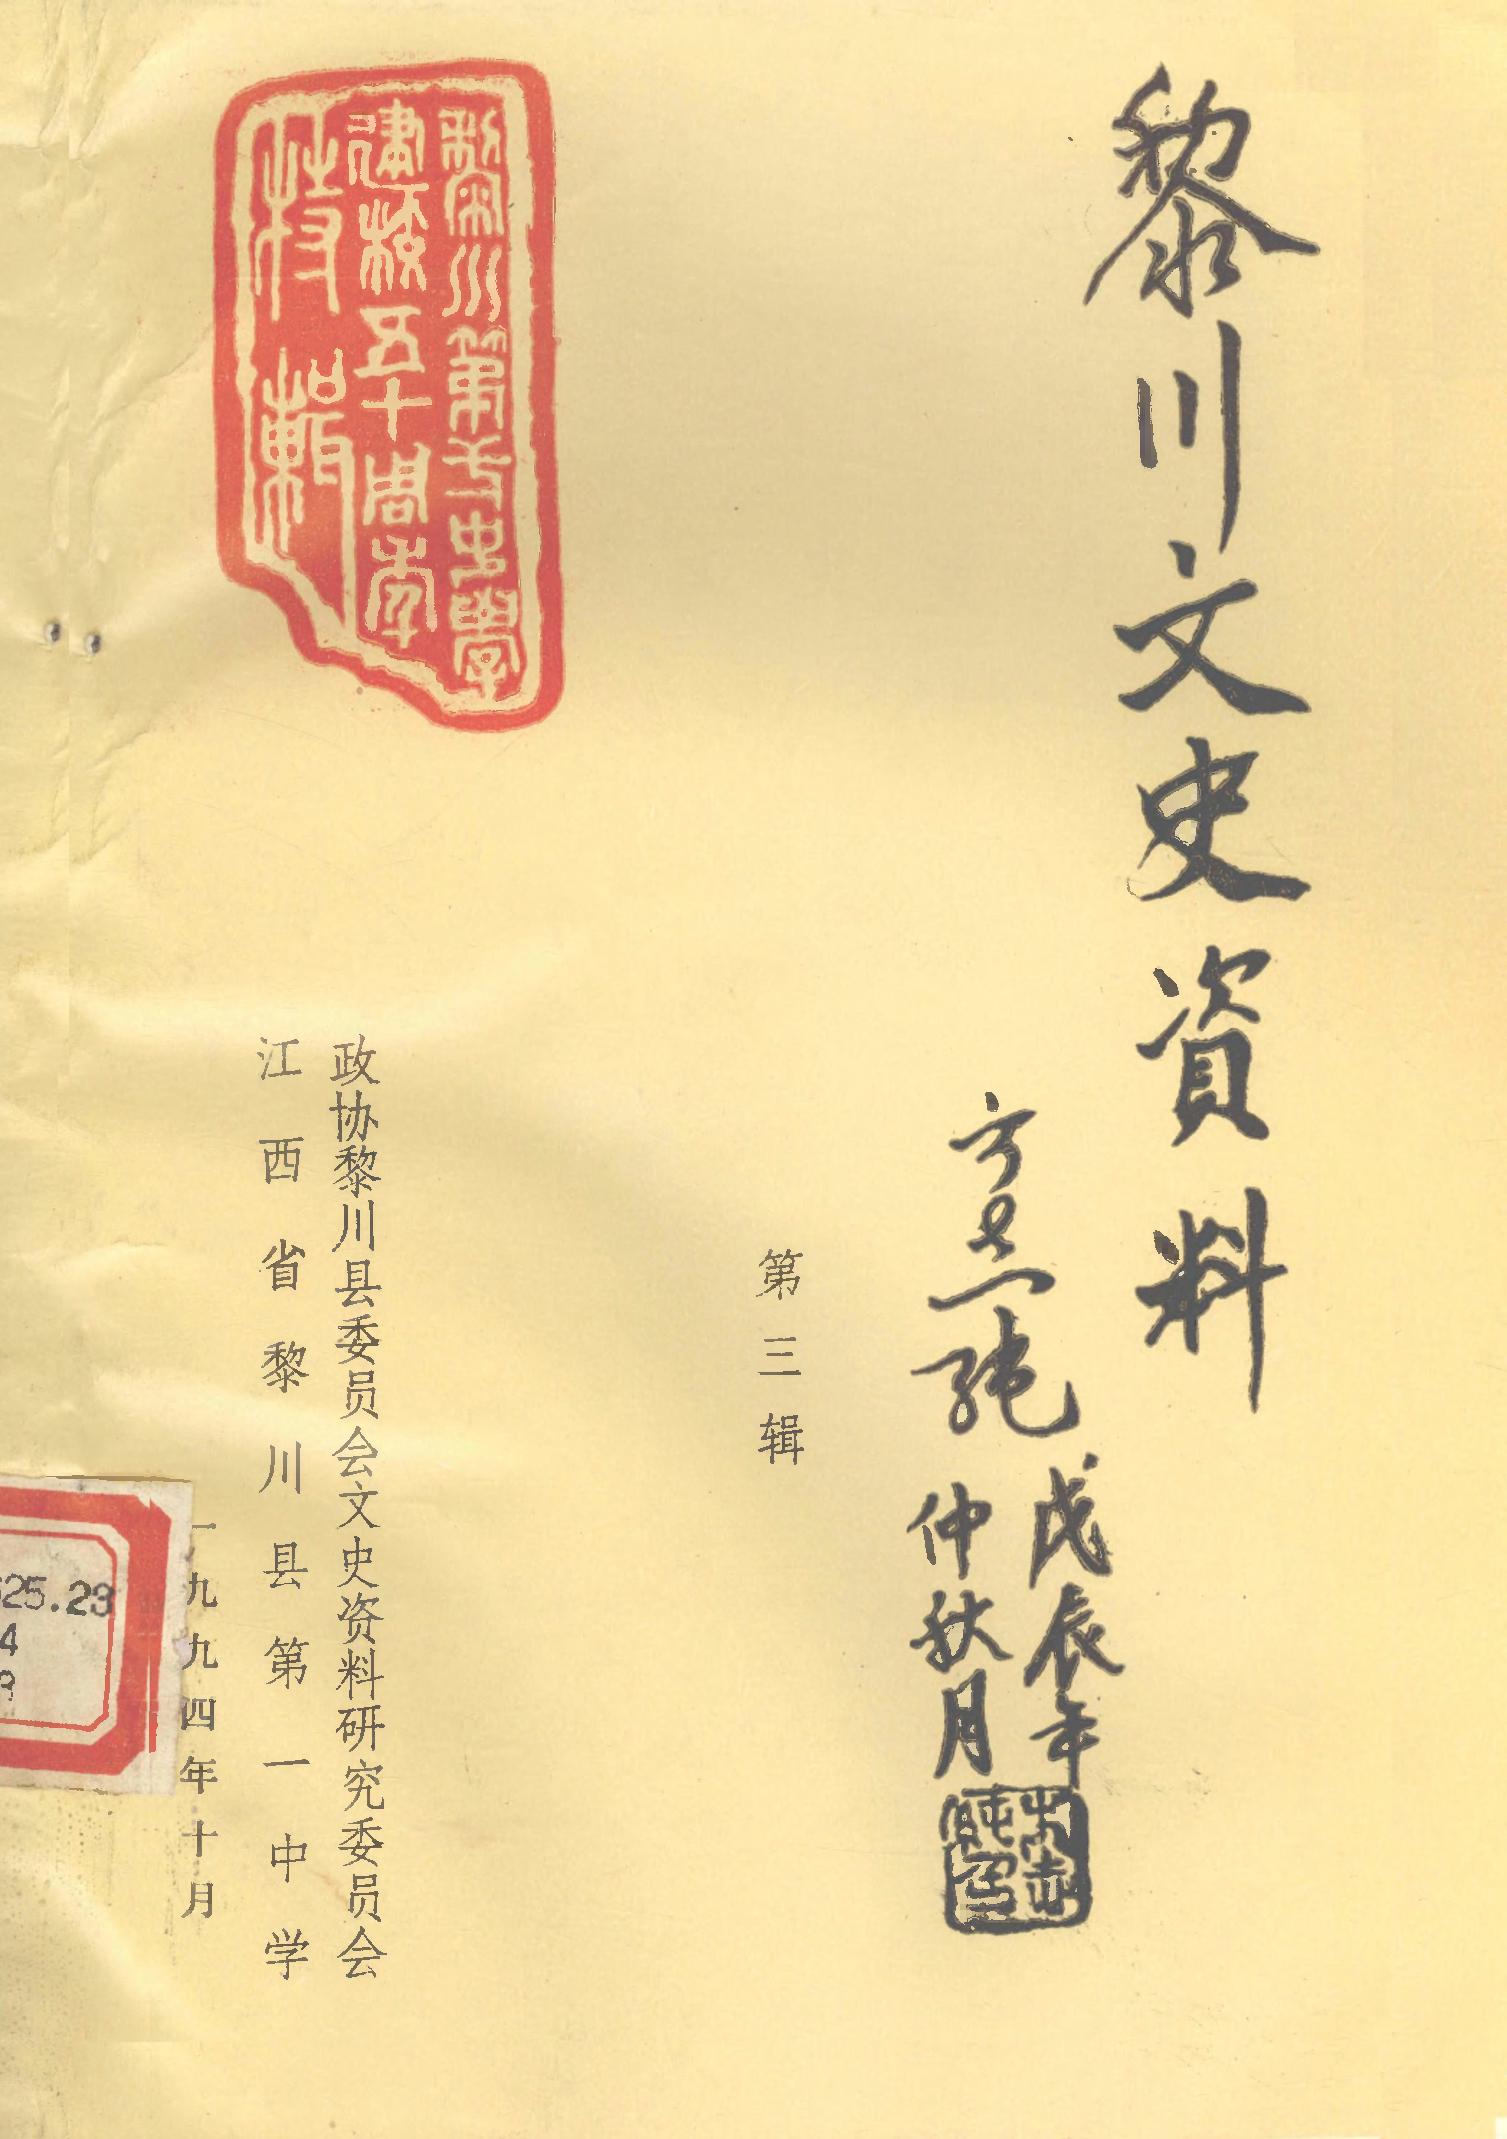 黎川文史資料
方志纯
戊辰年
仲秋月
第三辑
黎川第弌中學
建校五十周年
特輯
政协黎川县委员会文史资料研究委员会
江西省黎川县第一中学
一九九四年十月
25.23
4